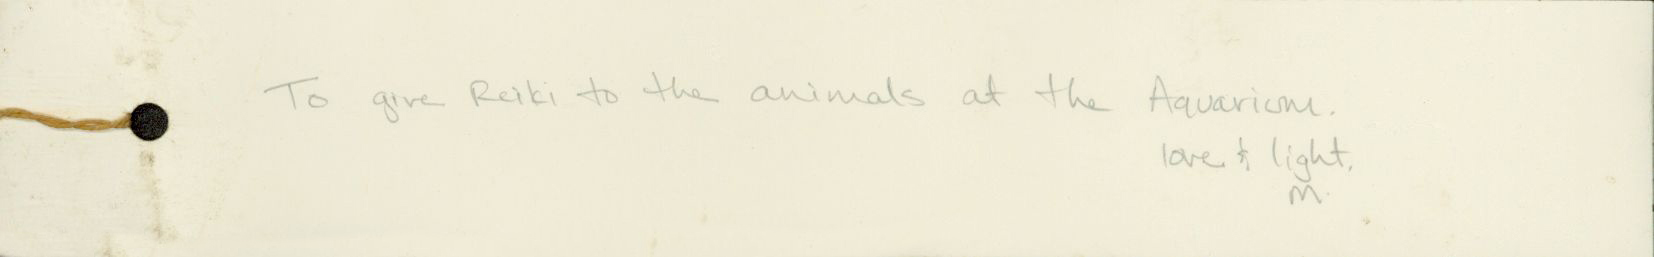 To give Reiki to the animals at the Aquarium.
love & light.
M.